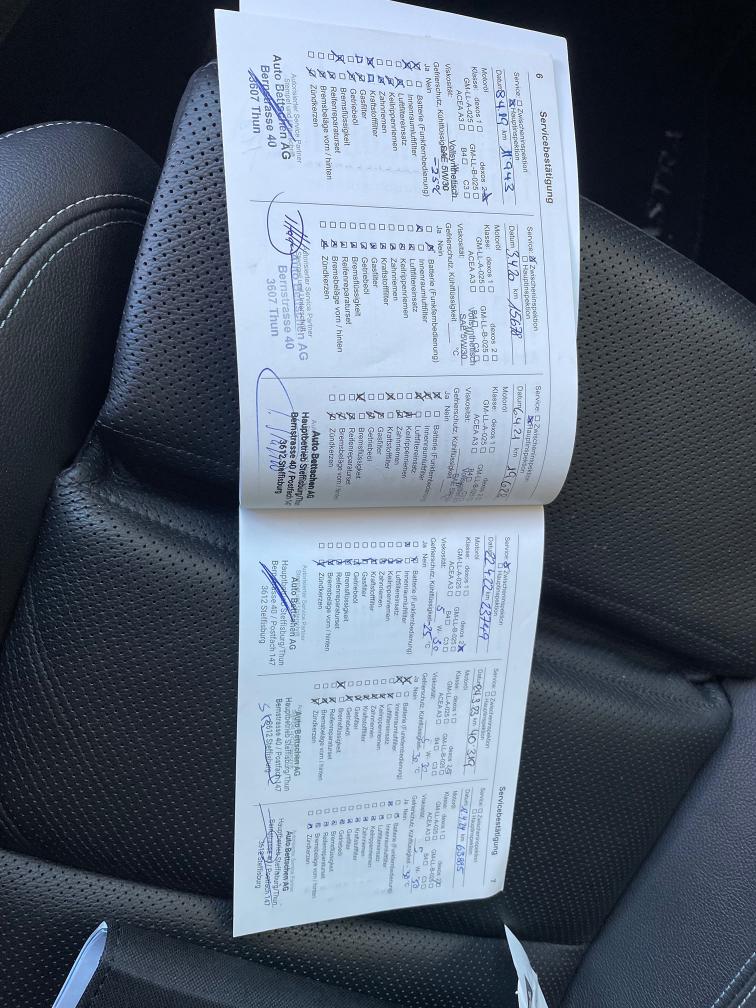 6
Servicebestätigung
Service: Zwischeninspektion
Hauptinspektion
Datum 8.4.19 km 11943
Motoröl
Klasse: dexos 1 dexos 2
GM-LL-A-025 GM-LL-B-025
ACEA A3 B4 C3
Viskosität: Vollsynthetisch
SAE 5W/30
Gefrierschutz, Kühlflüssigkeit -25°C
Ja Nein
Batterie (Funkfernbedienung)
Innenraumluftfilter
Luftfiltereinsatz
Keilrippenriemen
Zahnriemen
Kraftstofffilter
Gasfilter
Getriebeöl
Bremsflüssigkeit
Reifenreparaturset
Bremsbeläge vorn / hinten
Zündkerzen
Autorisierter Service Partner
Auto Bettschen AG
Bernstrasse 40
3607 Thun
Service: Zwischeninspektion
Hauptinspektion
Datum 3.4.20 km 15678
Motoröl
Klasse: dexos 1 dexos 2
GM-LL-A-025 GM-LL-B-025
ACEA A3 B4 C3
Viskosität: SAE 5W/30
Gefrierschutz, Kühlflüssigkeit °C
Ja Nein
Batterie (Funkfernbedienung)
Innenraumluftfilter
Luftfiltereinsatz
Keilrippenriemen
Zahnriemen
Kraftstofffilter
Gasfilter
Getriebeöl
Bremsflüssigkeit
Reifenreparaturset
Bremsbeläge vorn / hinten
Zündkerzen
Service Partner
Bettschen AG
Bernstrasse 40
3607 Thun
Service: Zwischeninspektion
Hauptinspektion
Datum 6.4.21 km
Motoröl
Klasse: dexos 1 dexos 2
GM-LL-A-025
ACEA A3 B4
Viskosität:
Gefrierschutz, Kühlflüssigkeit
Ja Nein
Batterie (Funkfernbedienung)
Innenraumluftfilter
Luftfiltereinsatz
Keilrippenriemen
Zahnriemen
Kraftstofffilter
Gasfilter
Getriebeöl
Bremsflüssigkeit
Reifenreparaturset
Bremsbeläge vorn / hinten
Zündkerzen
Auto Bettschen AG
Hauptbetrieb Steffisburg/Thun
Bernstrasse 40 / Postfach 147
3612 Steffisburg
7
Servicebestätigung
Service: Zwischeninspektion
Hauptinspektion
Datum 22.4.22 km 23749
Motoröl
Klasse: dexos 1 dexos 2
GM-LL-A-025 GM-LL-B-025
ACEA A3 B4 C3
Viskosität: 5 W- 30
Gefrierschutz, Kühlflüssigkeit -25 °C
Ja Nein
Batterie (Funkfernbedienung)
Innenraumluftfilter
Luftfiltereinsatz
Keilrippenriemen
Zahnriemen
Kraftstofffilter
Gasfilter
Getriebeöl
Bremsflüssigkeit
Reifenreparaturset
Bremsbeläge vorn / hinten
Zündkerzen
Auto Bettschen AG
Hauptbetrieb Steffisburg/Thun
Bernstrasse 40 / Postfach 147
3612 Steffisburg
Service: Zwischeninspektion
Hauptinspektion
Datum km
Motoröl
Klasse: dexos 1 dexos 2
GM-LL-A-025 GM-LL-B-025
ACEA A3 B4 C3
Viskosität: W- 30
Gefrierschutz, Kühlflüssigkeit -30 °C
Ja Nein
Batterie (Funkfernbedienung)
Innenraumluftfilter
Luftfiltereinsatz
Keilrippenriemen
Zahnriemen
Kraftstofffilter
Gasfilter
Getriebeöl
Bremsflüssigkeit
Reifenreparaturset
Bremsbeläge vorn / hinten
Zündkerzen
Auto Bettschen AG
Hauptbetrieb Steffisburg/Thun
Bernstrasse 40 / Postfach 147
3612 Steffisburg
Service: Zwischeninspektion
Hauptinspektion
Datum km
Motoröl
Klasse: dexos 1 dexos 2
GM-LL-A-025 GM-LL-B-025
ACEA A3 B4 C3
Viskosität: W- 30
Gefrierschutz, Kühlflüssigkeit -30 °C
Ja Nein
Batterie (Funkfernbedienung)
Innenraumluftfilter
Luftfiltereinsatz
Keilrippenriemen
Zahnriemen
Kraftstofffilter
Gasfilter
Getriebeöl
Bremsflüssigkeit
Reifenreparaturset
Bremsbeläge vorn / hinten
Zündkerzen
Auto Bettschen AG
Hauptbetrieb Steffisburg/Thun
Bernstrasse 40 / Postfach 147
3612 Steffisburg